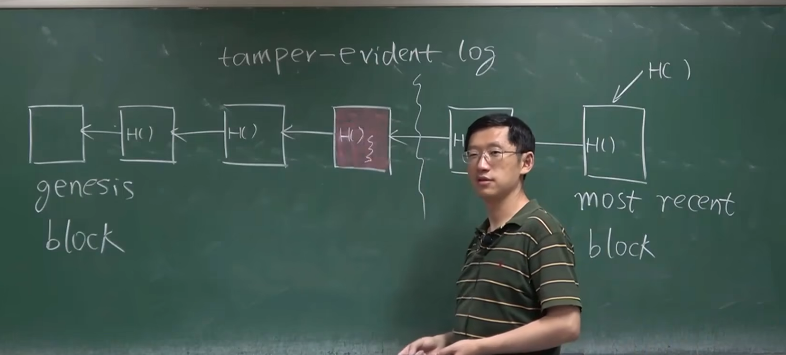 tamper-evident log
H()
H()
H()
H()
H
H()
genesis
block
most recent
block